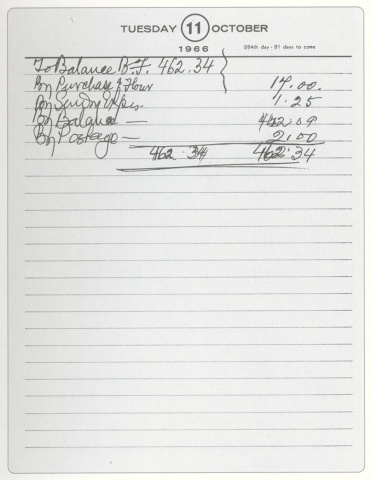 TUESDAY 11 OCTOBER
1966
284th day - 81 days to come
To Balance B.F. 462.34
By Purchase of Flour 17.00.
By Sundry Exps. 1.25
By Balance — 442.09
By Postage — 2.00
462.34 462.34